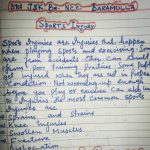 3rd J&K Bn. NCC BARAMULLA
SPORTS INJURY
Sports Injuries are injuries that happen
when playing sports and exercising Some
are from accidents. Others can should
from Poor training Practice Some
get injured when they are not in Proper
Condition. Not warming up enough
before you play or exercise can also
to injuries. The most common sports
injuries are
Sprains and strains
Knee Injuries
Swollen Muscles
Fracture